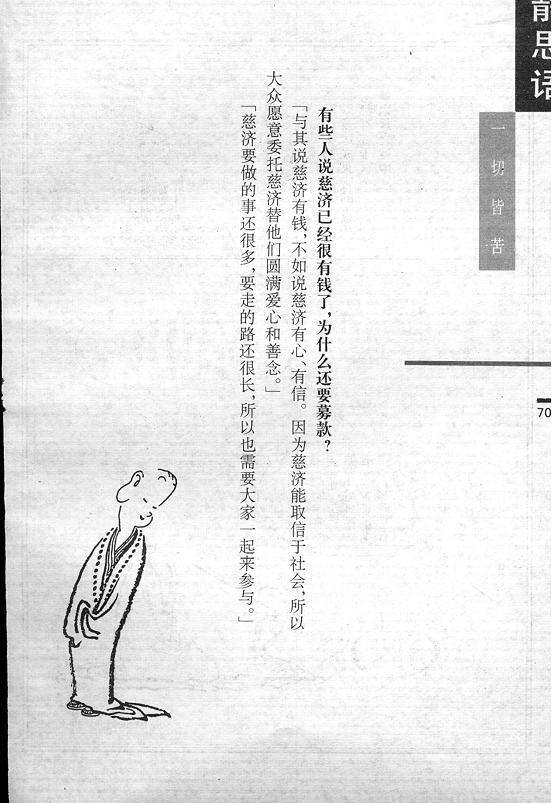 静思语
一切皆苦
70
有些人说慈济已经很有钱了，为什么还要募款？
「与其说慈济有钱，不如说慈济有心、有信。因为慈济能取信于社会，所以
大众愿意委托慈济替他们圆满爱心和善念。」
「慈济要做的事还很多，要走的路还很长，所以也需要大家一起来参与。」